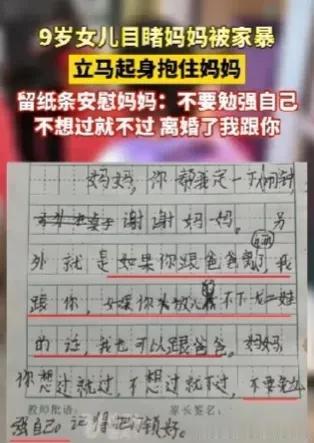 9岁女儿目睹妈妈被家暴
立马起身抱住妈妈
留纸条安慰妈妈：不要勉强自己
不想过就不过 离婚了我跟你
妈妈，你帮我定一下闹钟
谢谢妈妈。另
外就是如果你跟爸爸离了，我
跟你，如果你
不下
的话，我也可以跟爸爸。妈妈
你想过就过，不想过就不过，不要勉
强自己。记得把门锁好。
教师批语： 家长签名：